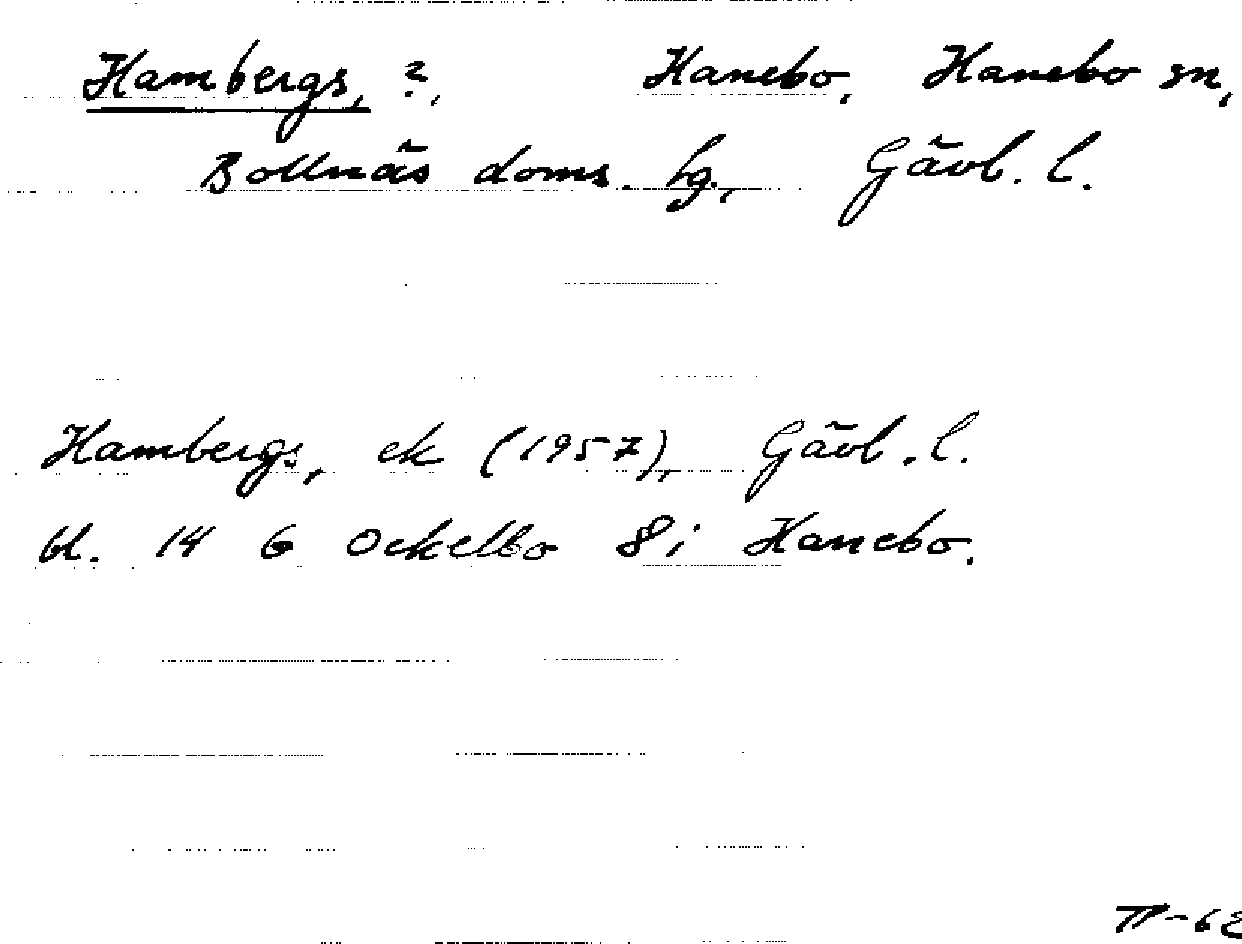 Hambergs, ?, Hanebo, Hanebo sn,
Bollnäs doms. hg., Gävl. l.
Hambergs, ek (1957), Gävl. l.
bl. 14 G Ockelbo 8 i Hanebo.